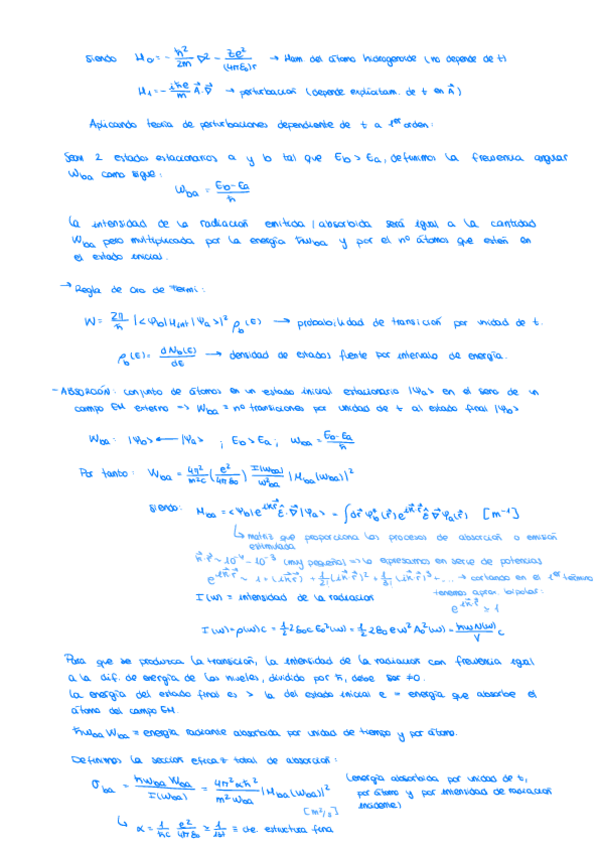 siendo H₀ = - ℏ²/2m ∇² - Ze²/(4πε₀)r → Ham. del átomo hidrogenoide (no depende de t)
H₁ = - iℏe/m A⃗·∇⃗ → perturbación (depende explícitam. de t en A⃗)
Aplicando teoría de perturbaciones dependiente de t a 1er orden:
Sean 2 estados estacionarios a y b tal que Eb > Ea, definimos la frecuencia angular
ωba como sigue:
ωba = Eb-Ea/ℏ
La intensidad de la radiación emitida / absorbida será igual a la cantidad
Wba pero multiplicada por la energía ℏωba y por el nº átomos que estén en
el estado inicial.
→ Regla de Oro de Fermi:
W = 2π/ℏ |<ψb|Hint|ψa>|² ρb(E) → probabilidad de transición por unidad de t.
ρb(E) = dNb(E)/dE → densidad de estados fuente por intervalo de energía.
- ABSORCIÓN: conjunto de átomos en un estado inicial estacionario |ψa> en el seno de un
campo EM externo → Wba = nº transiciones por unidad de t al estado final |ψb>
Wba: |ψb> ← |ψa> ; Eb > Ea ; ωba = Eb-Ea/ℏ
Por tanto: Wba = 4π²/m²c (e²/4πε₀) I(ωba)/ω²ba |Mba(ωba)|²
siendo: Mba = <ψb|e^ik⃗·r⃗ ε̂·∇⃗|ψa> = ∫dr⃗ ψb*(r⃗) e^ik⃗·r⃗ ε̂·∇⃗ψa(r⃗) [m⁻¹]
↳ matriz que proporciona los procesos de absorción o emisión
estimulada
k⃗·r⃗ ~ 10⁻⁴ - 10⁻³ (muy pequeño) => lo expresamos en serie de potencias
e^ik⃗·r⃗ ~ 1 + (ik⃗·r⃗) + 1/2! (ik⃗·r⃗)² + 1/3! (ik⃗·r⃗)³ + ... → cortando en el 1er término
tenemos aprox. bipolar:
I(ω) = intensidad de la radiación
I(ω) = ρ(ω)c = 1/2 ε₀c E₀²(ω) = 1/2 ε₀ c ω² A₀²(ω) = ℏωN(ω)/V c
Para que se produzca la transición, la intensidad de la radiación con frecuencia igual
a la dif. de energía de los niveles, dividido por ℏ, debe ser ≠0.
La energía del estado final es > la del estado inicial e = energía que absorbe el
átomo del campo EM.
ℏωba Wba = energía radiante absorbida por unidad de tiempo y por átomo.
Definimos la sección eficaz total de absorción:
σba = ℏωba Wba/I(ωba) = 4π²αℏ²/m²ωba |Mba(ωba)|² (energía absorbida por unidad de t,
por átomo y por intensidad de radiación
incidente)
↳ α = 1/ℏc e²/4πε₀ ≃ 1/137 ≡ cte. estructura fina